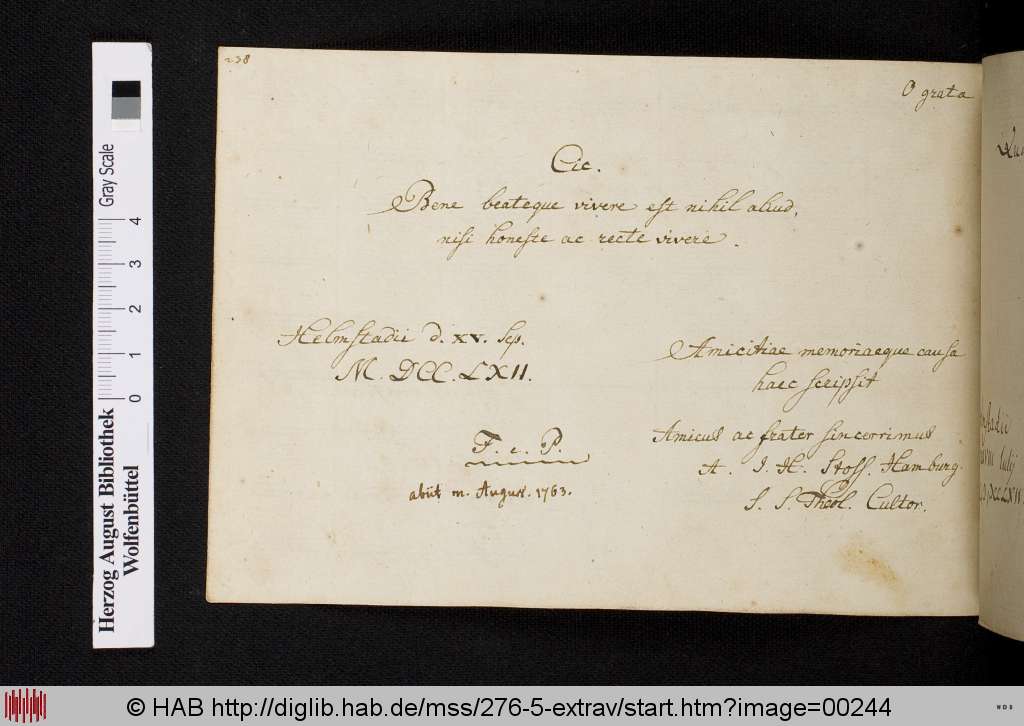 238
O grata
Cic.
Bene beateque vivere est nihil aliud,
nisi honeste ac recte vivere.
Helmstadii d. XV. Sep.
M. DCC. LXII.
Amicitiae memoriaeque causa
haec scripsit
Amicus ac frater sincerrimus
A. J. H. Stoss. Hamburg.
S. S. Theol. Cultor.
F. c. P.
abiit m. August. 1763.
Gray Scale
0 1 2 3 4
Herzog August Bibliothek
Wolfenbüttel
© HAB http://diglib.hab.de/mss/276-5-extrav/start.htm?image=00244